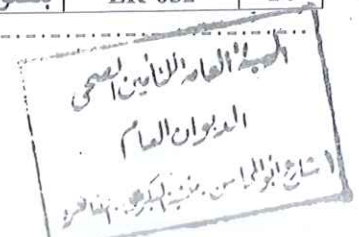 الهيئة العامة للتأمين الصحى
الديوان العام
١ شارع ابو المحاسن منشية البكرى - القاهرة